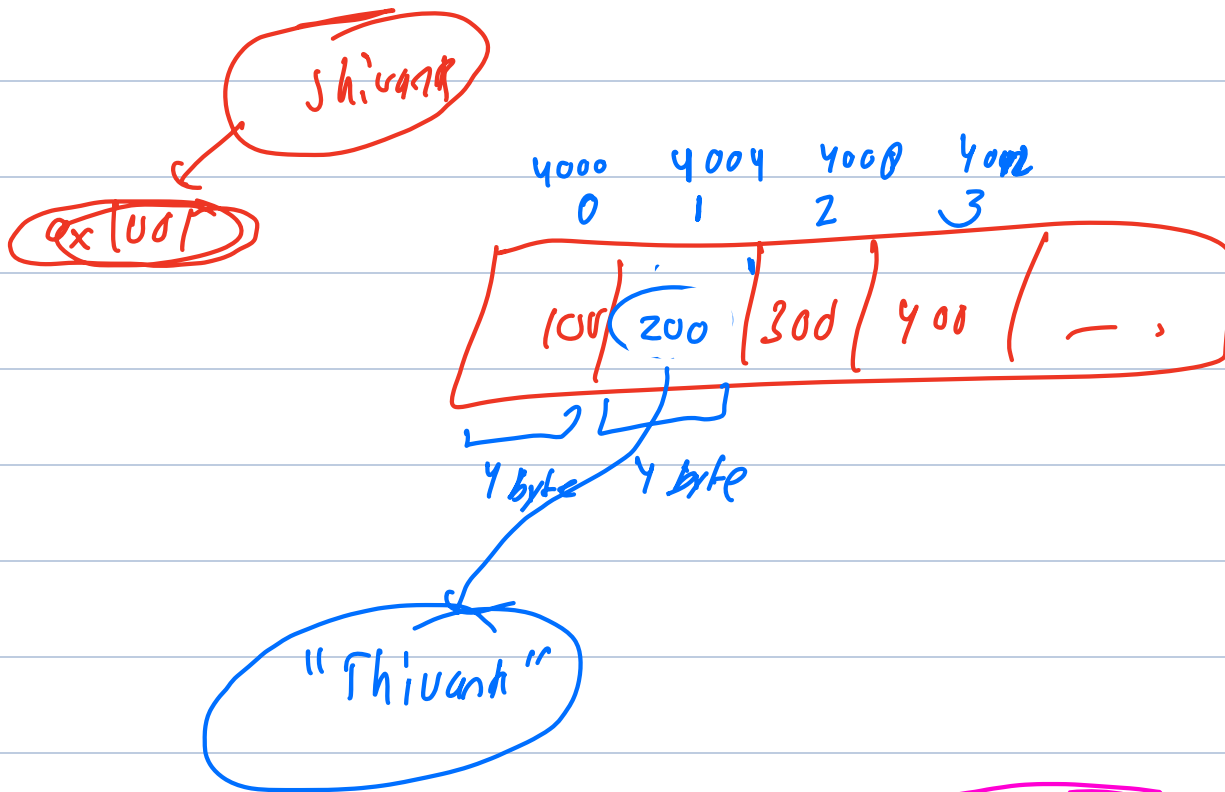 Shivank
4000 4004 4008 4012
0 1 2 3
100 200 300 400
4 byte 4 byte
"Shivank"